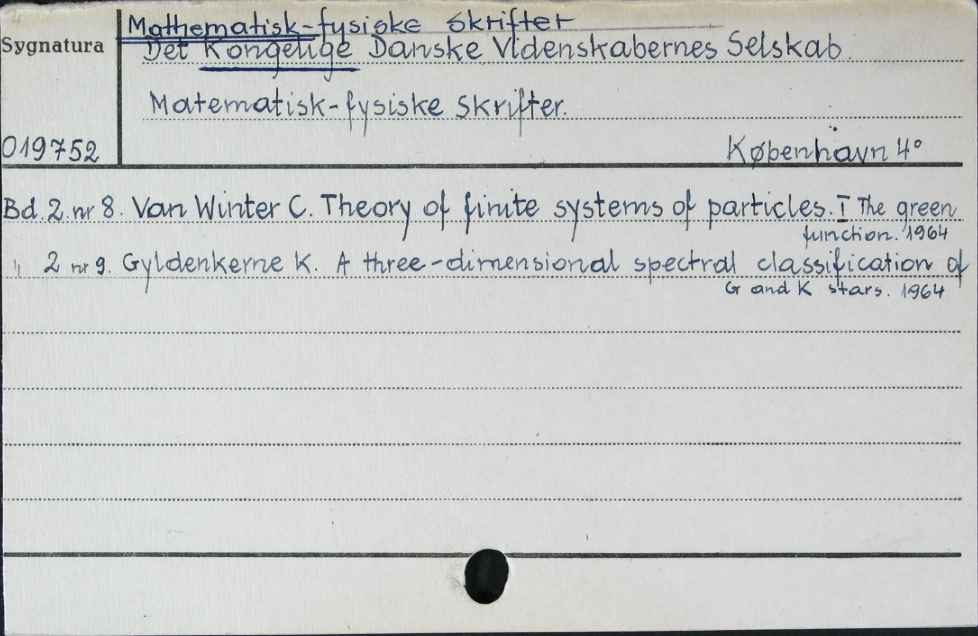 Mathematisk-fysiske Skrifter
Sygnatura
Det Kongelige Danske Videnskabernes Selskab.
Matematisk-fysiske Skrifter.
019752
København 4°
Bd. 2. nr 8. Van Winter C. Theory of finite systems of particles. I The green
function. 1964
" 2 nr 9. Gyldenkerne K. A three-dimensional spectral classification of
G and K stars. 1964